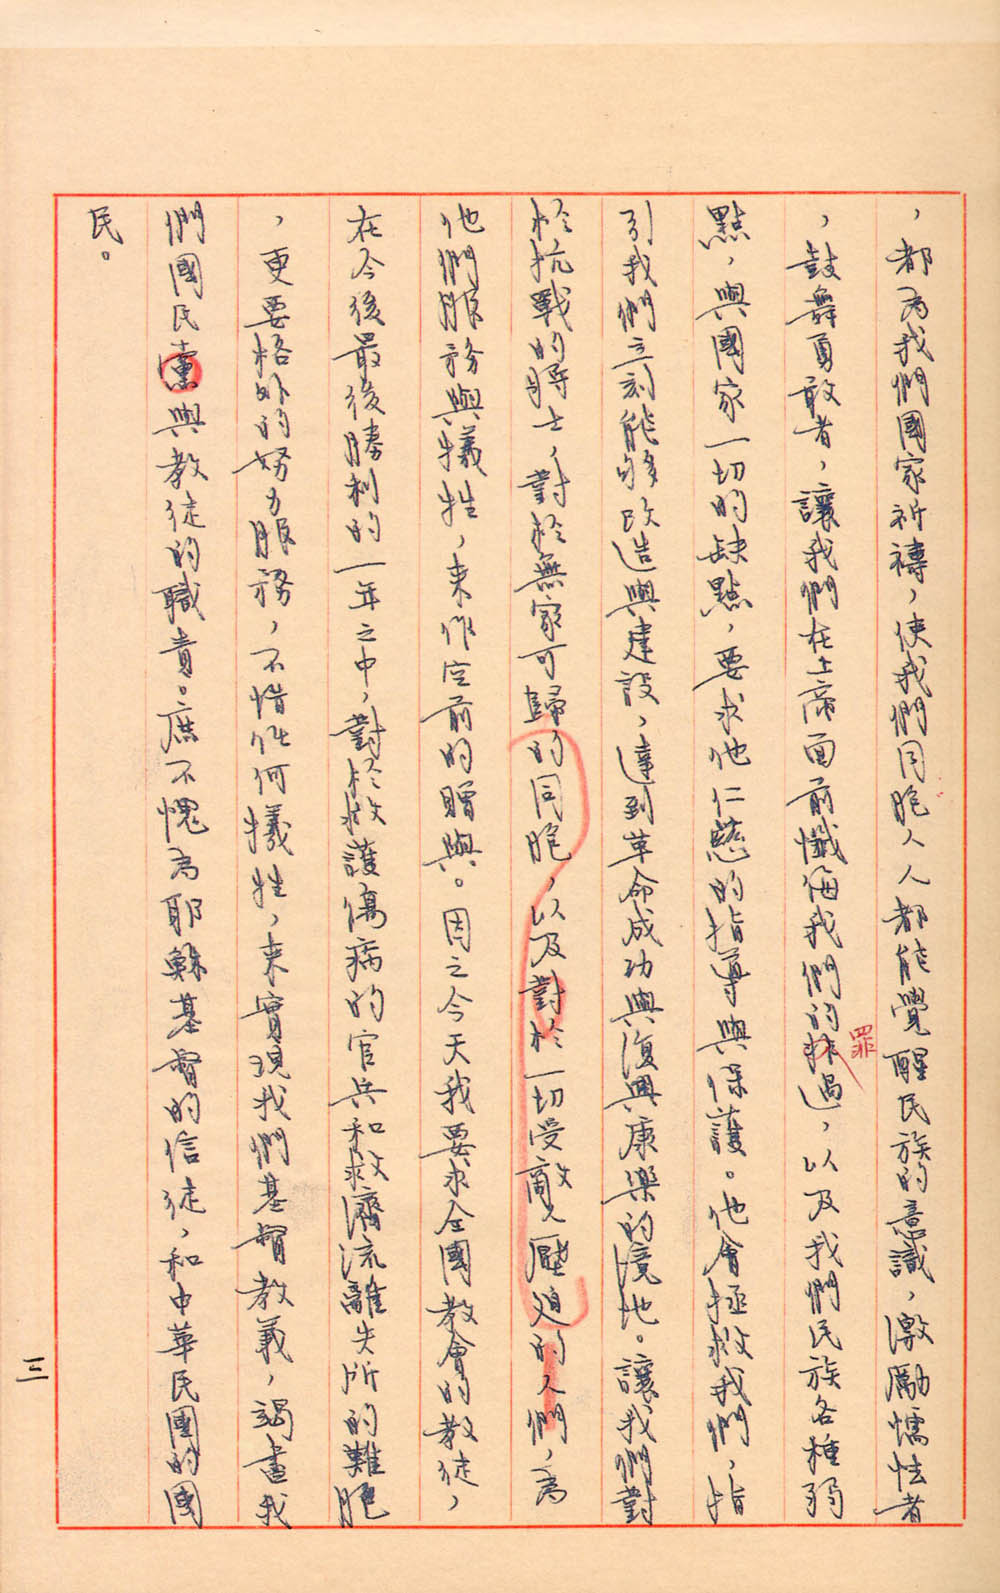 ，都為我們國家祈禱，使我們同胞人人都能覺醒民族的意識，激勵懦怯者
，鼓舞勇敢者，讓我們在上帝面前懺悔我們的罪過，以及我們民族各種弱
點，與國家一切的缺點，要求他仁慈的指導與保護。他會拯救我們，指
引我們立刻能够改造與建設，達到革命成功與復興康樂的境地。讓我們對
於抗戰的將士，對於無家可歸的同胞，以及對於一切受敵人壓迫的人們，為
他們服務與犧牲，來作空前的贈與。因之今天我要求全國教會的教徒，
在今後最後勝利的一年之中，對於救護傷病的官兵和救濟流離失所的難胞
，更要格外的努力服務，不惜任何犧牲，來實現我們基督教義，竭盡我
們國民黨與教徒的職責。庶不愧為耶穌基督的信徒，和中華民國的國
民。
三